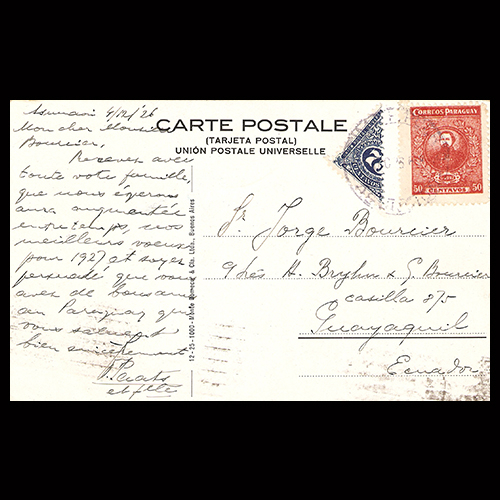 Asuncion 4/12/26
Mon cher Monsieur
Bourcier,
Recevez avec
toute votre famille,
que nous espérons
aura augmentée
entretemps, nos
meilleurs voeux
pour 1927 et soyez
persuadé que vous
avez de bons amis
au Paraguay qui
vous saluent
bien sincèrement
et fille
CARTE POSTALE
(TARJETA POSTAL)
UNIÓN POSTALE UNIVERSELLE
CORREOS PARAGUAY
50 CENTAVOS 50
Sr. Jorge Bourcier
Chés H. Bryhn & G. Bourcier
casilla 875
Guayaquil
Ecuador